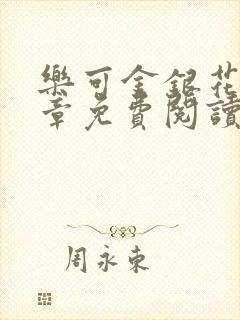 樂可金銀花
章免費閱讀
周永東